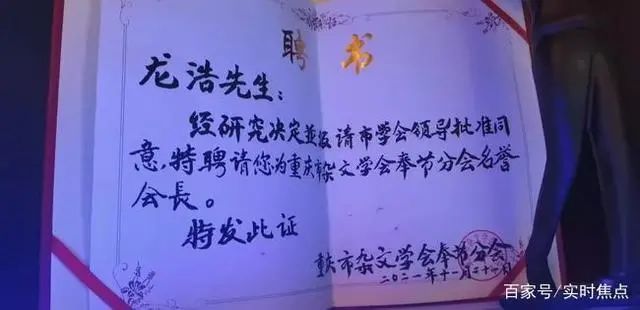 聘书
龙浩先生：
经研究决定並报请市学会领导批准同
意，特聘请您为重庆市杂文学会奉节分会名誉
会長。
特发此证
重庆市杂文学会奉节分会
二〇二一年十一月二十一日
百家号/实时焦点